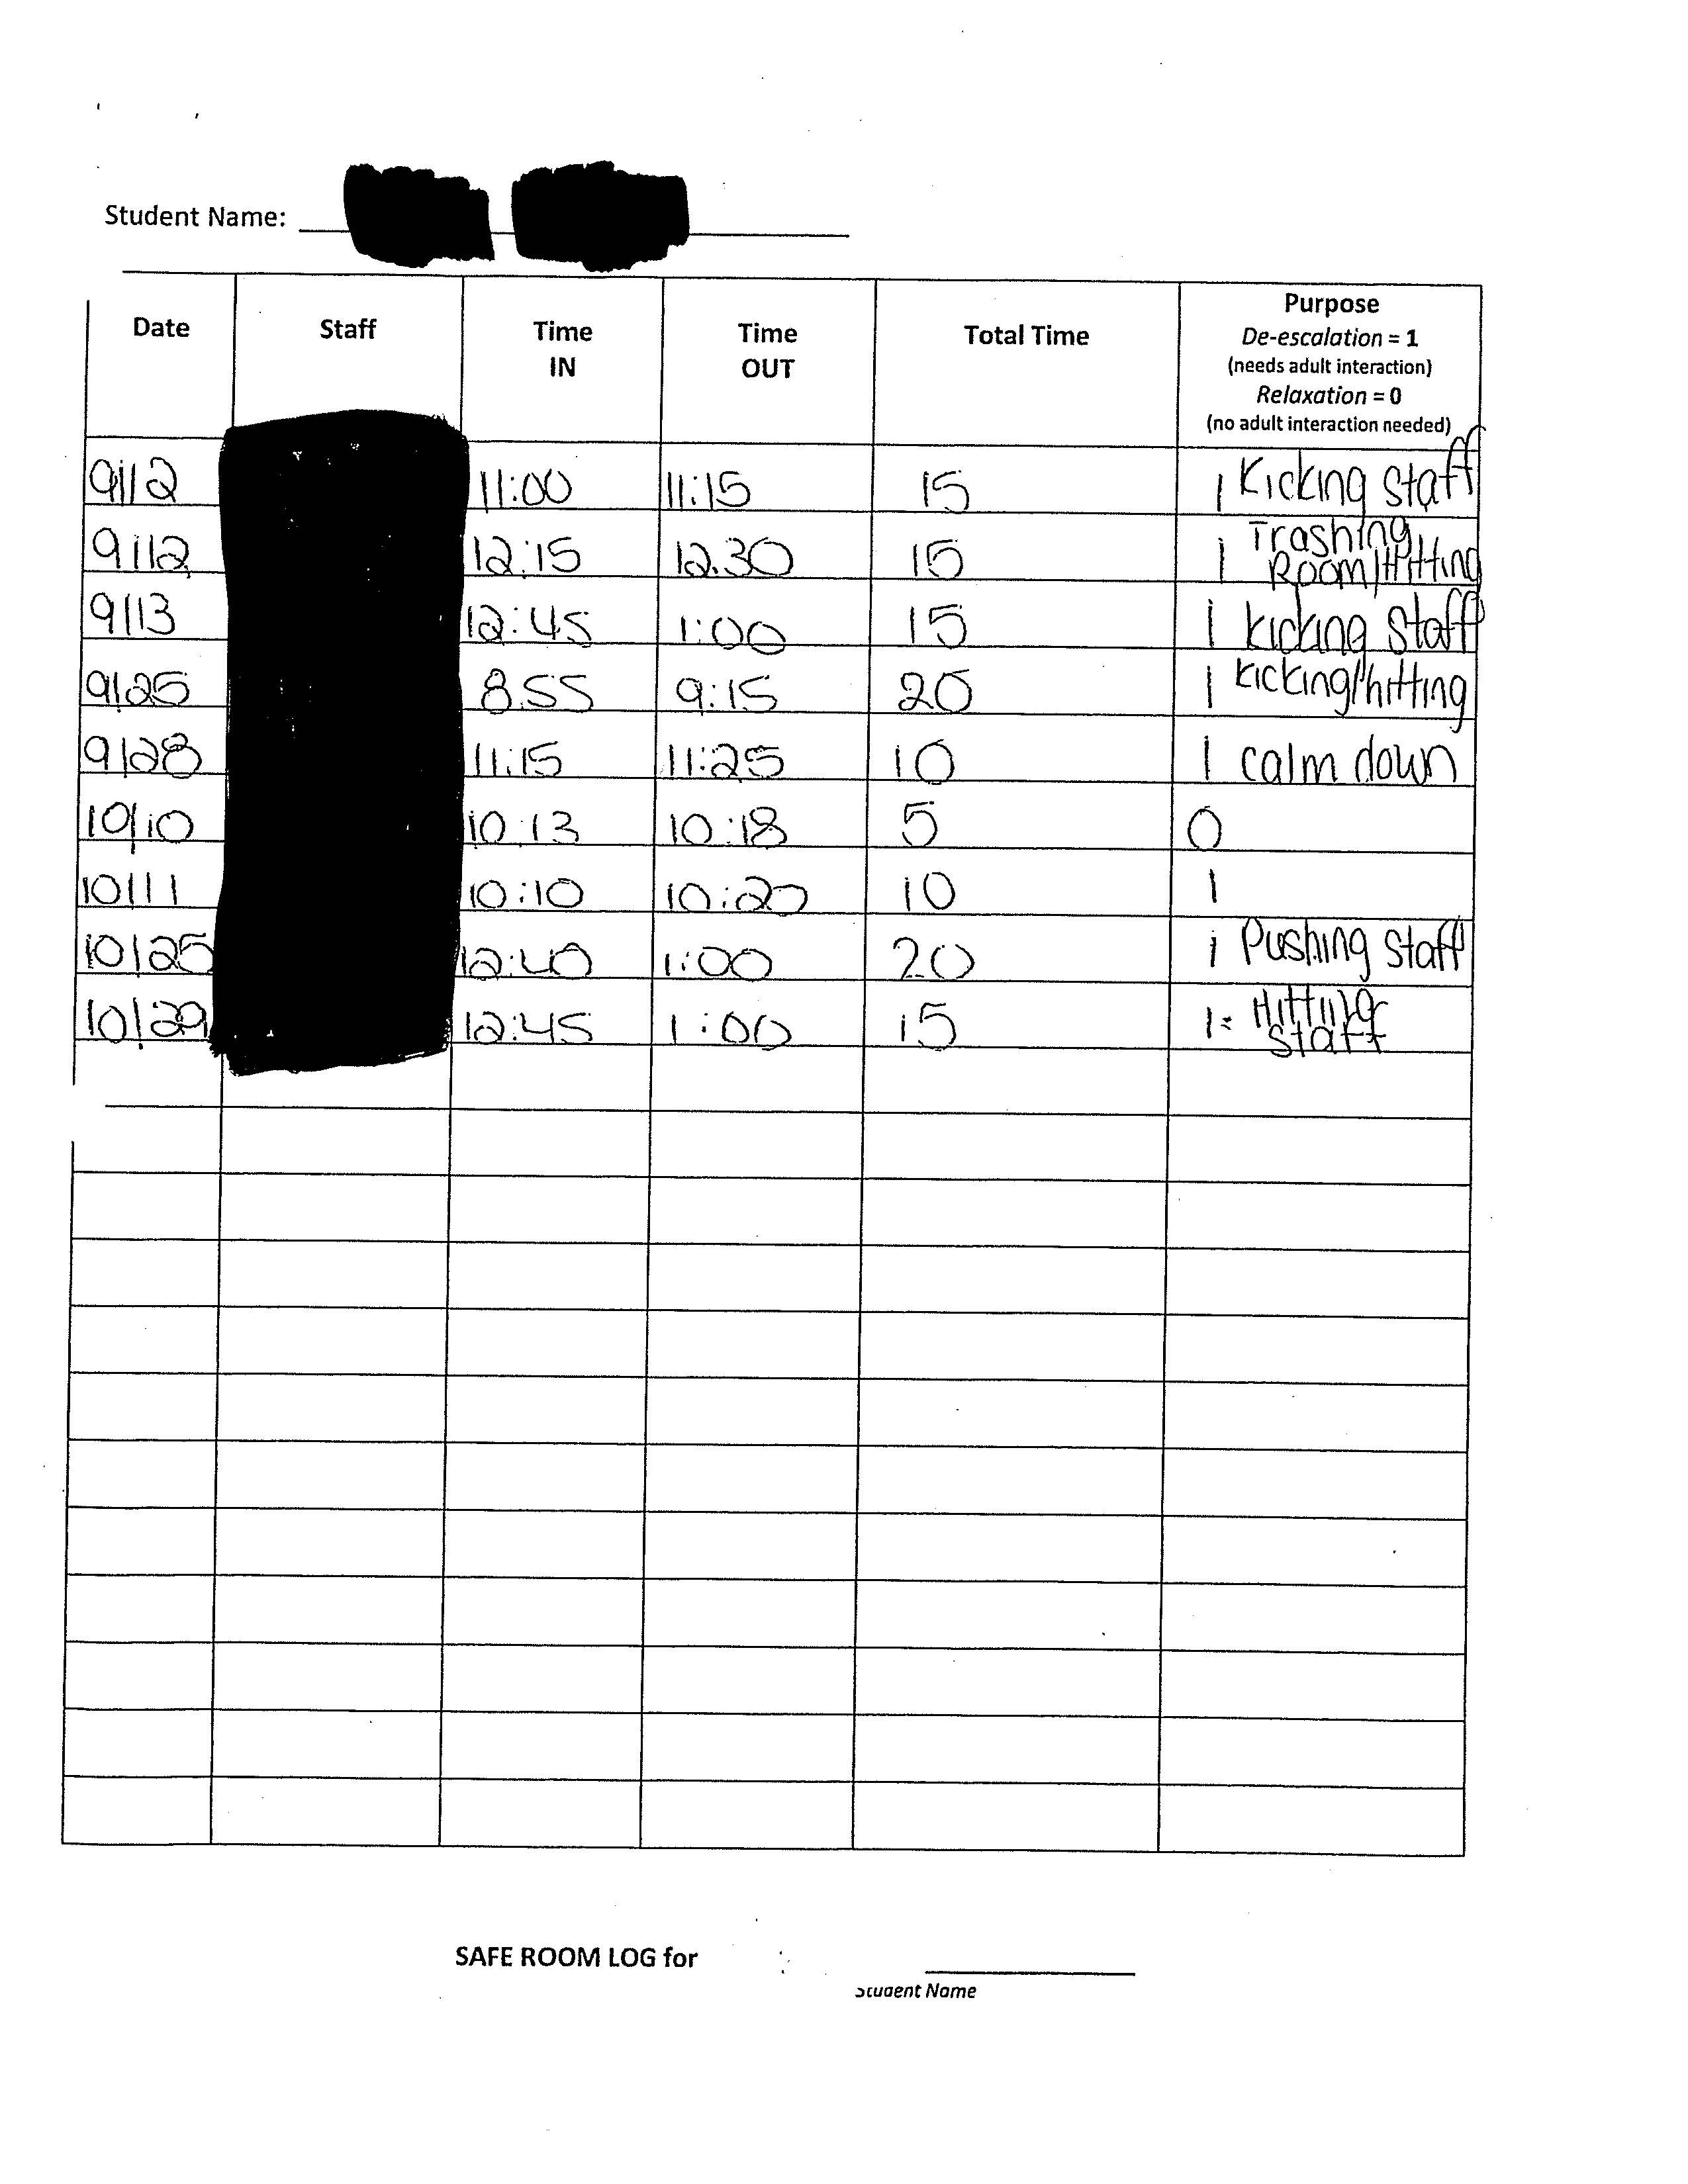 Student Name:
Date Staff Time IN Time OUT Total Time Purpose
De-escalation = 1
(needs adult interaction)
Relaxation = 0
(no adult interaction needed)
9/12 11:00 11:15 15 1 Kicking Staff
9/12 12:15 12.30 15 1 Trashing Room/Hitting
9/13 12:45 1:00 15 1 kicking Staff
9/25 8:55 9:15 20 1 kicking/hitting
9/28 11:15 11:25 10 1 calm down
10/10 10:13 10:18 5 0
10/11 10:10 10:20 10 1
10/25 12:40 1:00 20 1 Pushing Staff
10/29 12:45 1:00 15 1: Hitting Staff
SAFE ROOM LOG for
Student Name